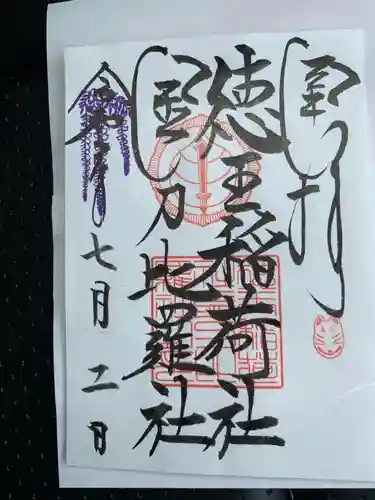 奉拝
徳王稲荷社
金刀比羅社
令和 年 七月 二日